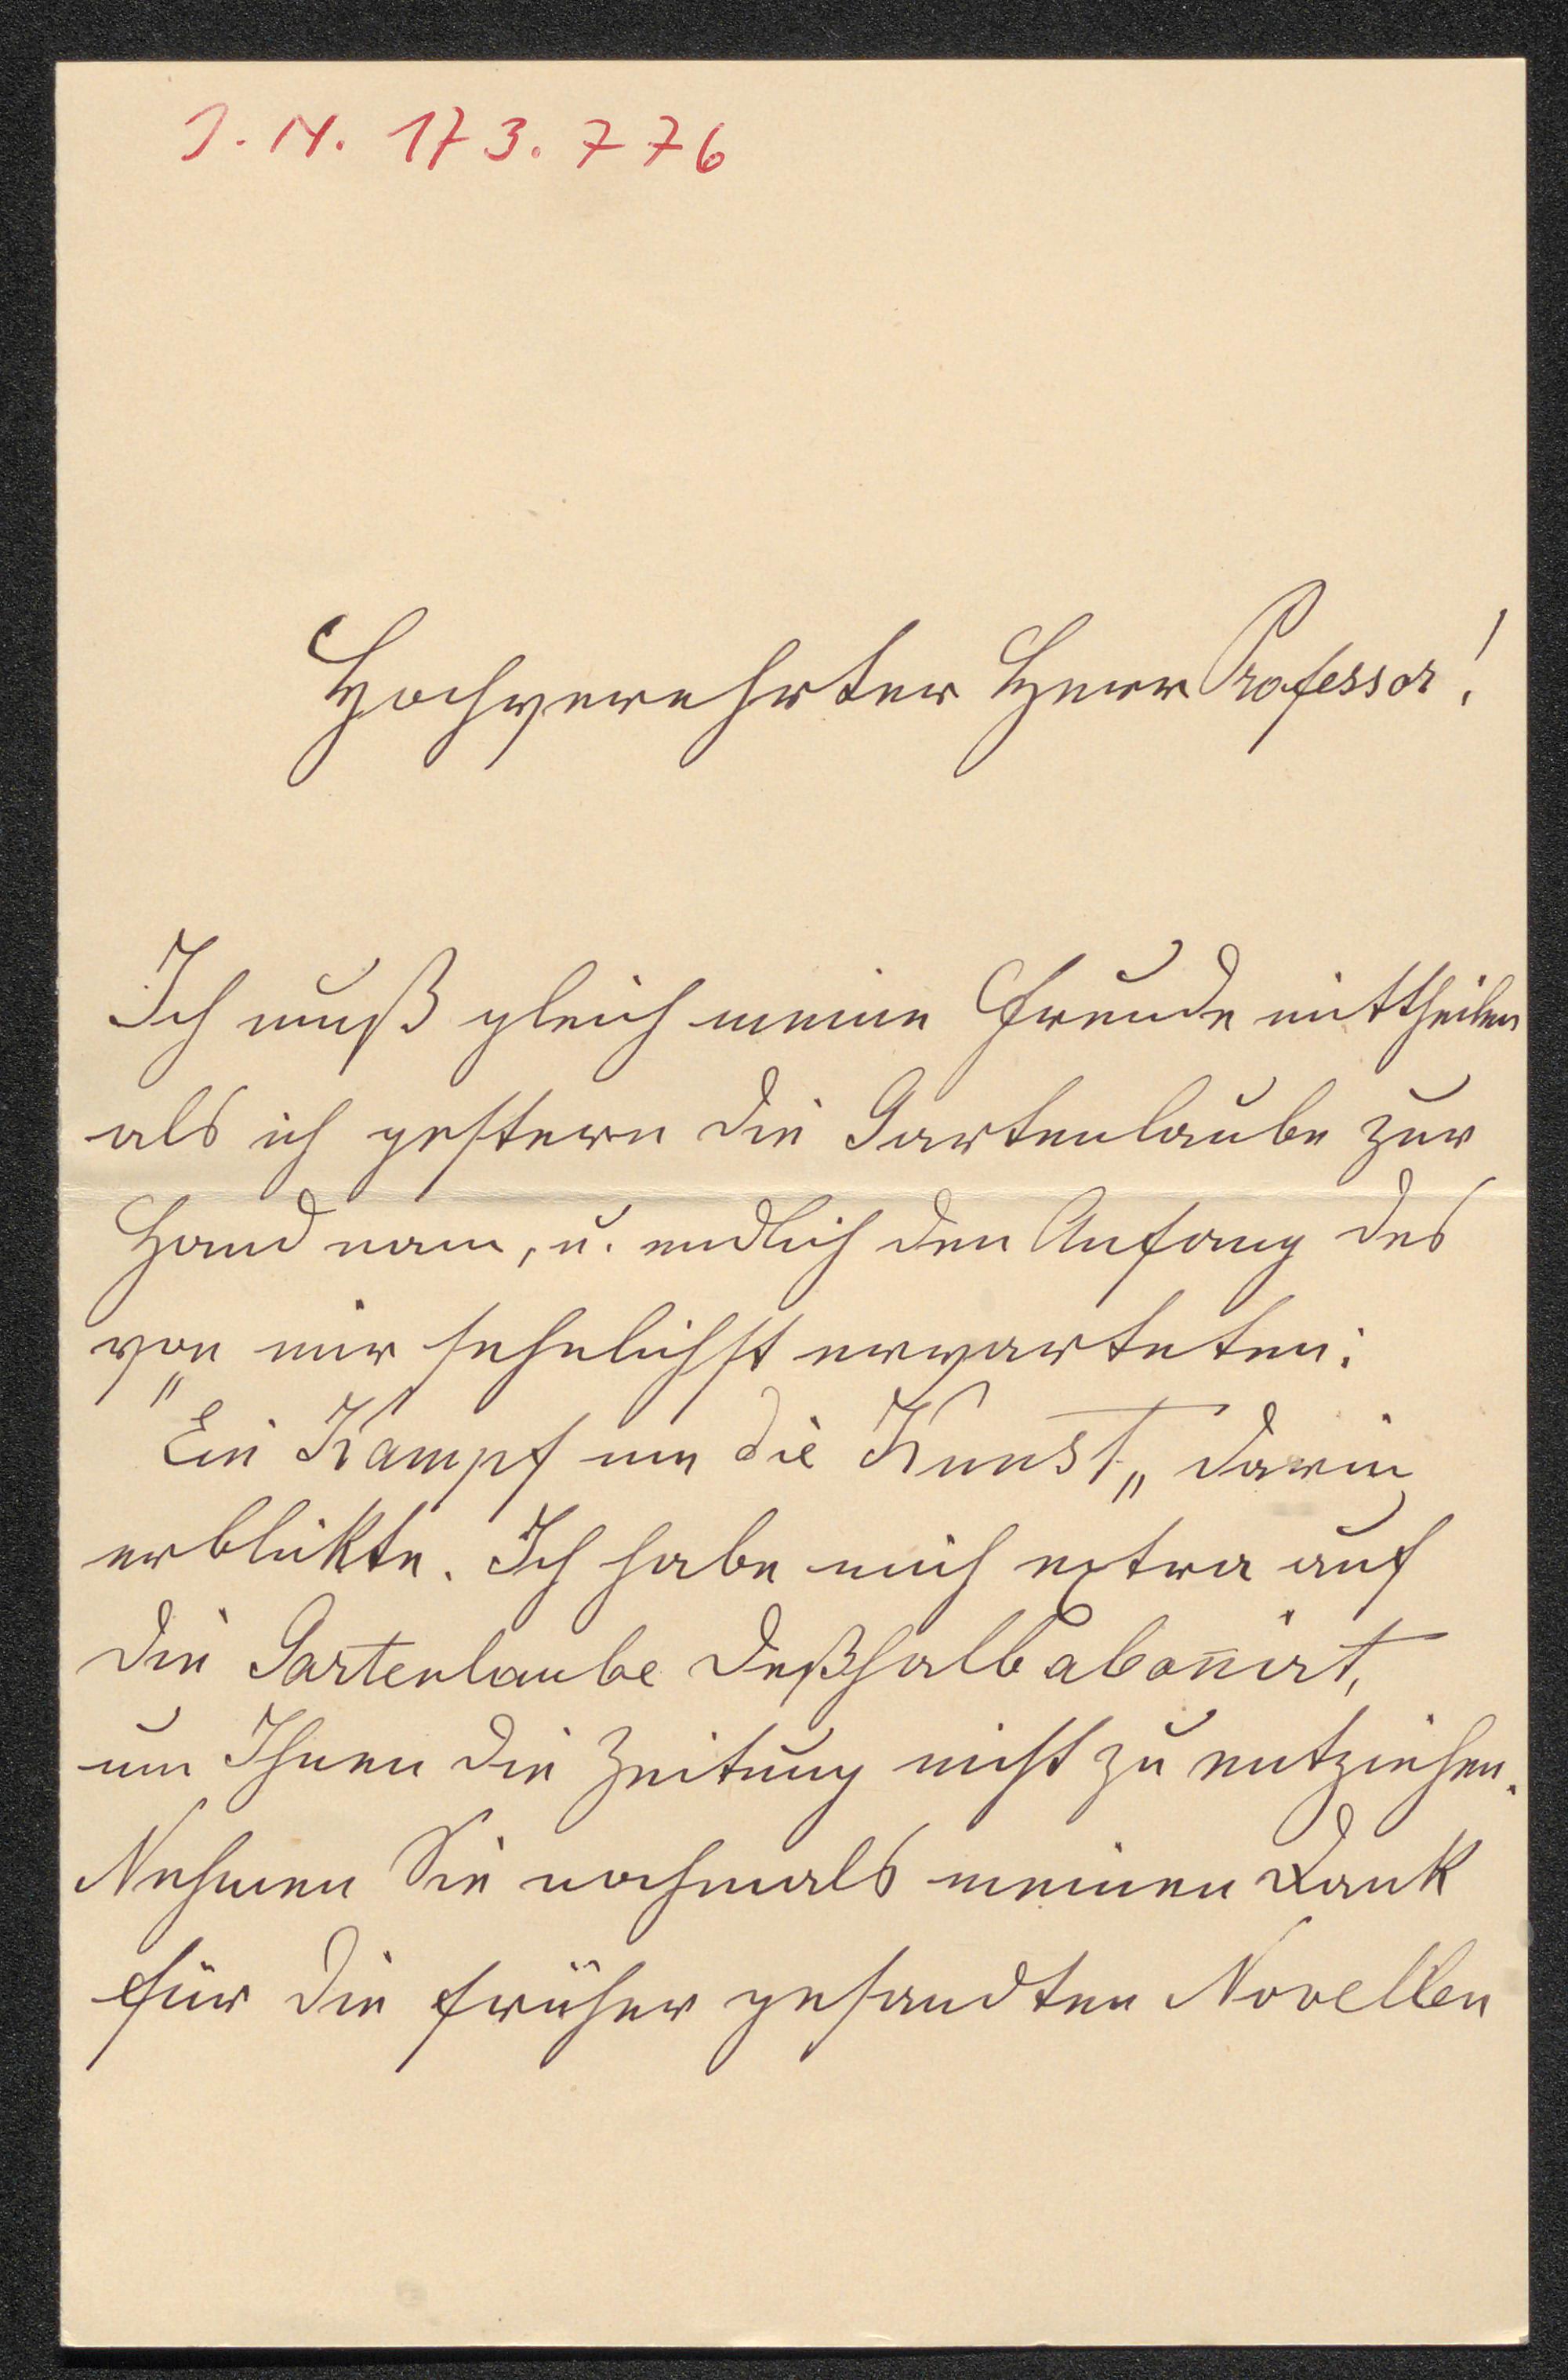 J. N. 173.776
Hochverehrter Herr Professor!
Ich muß gleich meine Freude mittheilen
als ich gestern die Gartenlaube zur
Hand nam, u. endlich den Anfang des
von mir sehnlichst erwarteten:
"Ein Kampf um die Kunst„ darin
erblikte. Ich habe mich extra auf
die Gartenlaube deßhalb abon̄irt,
um Ihnen die Zeitung nicht zu entziehen.
Nehmen Sie nochmals meinen Dank
für die früher gesandten Novellen